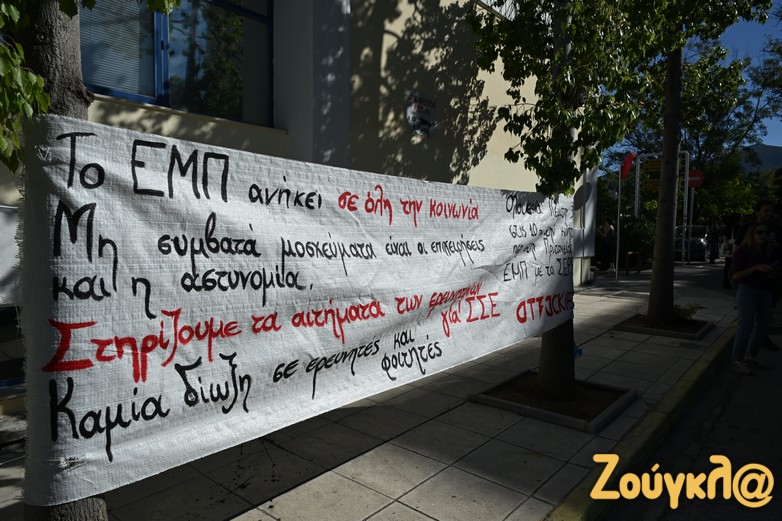 Το ΕΜΠ ανήκει σε όλη την κοινωνία
Μη συμβατά μοσχεύματα είναι οι επιχειρήσεις
και η αστυνομία.
Στηρίζουμε τα αιτήματα των ερευνητών
για ΣΣΕ
Καμία δίωξη σε ερευνητές και
φοιτητές
στις 10 π.μ.
ΕΜΠ με το ΣΕΡ
Ζούγκλ@